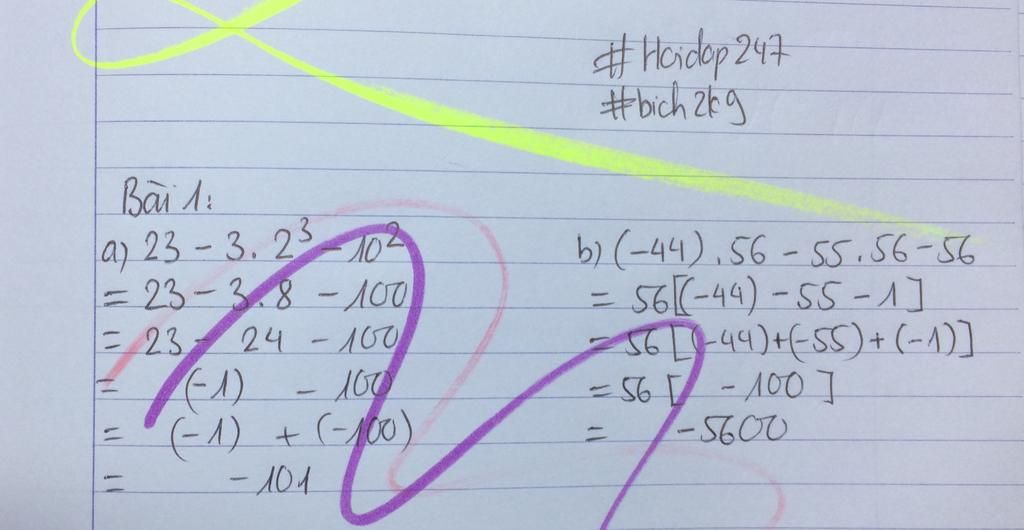 # Hoidap247
# bich2k9
Bài 1:
a) 23 - 3. 2³ - 10²
= 23 - 3.8 - 100
= 23 - 24 - 100
= (-1) - 100
= (-1) + (-100)
= -101
b) (-44) . 56 - 55. 56 - 56
= 56[(-44) - 55 - 1]
= 56[(-44)+(-55) + (-1)]
= 56 [ - 100 ]
= -5600